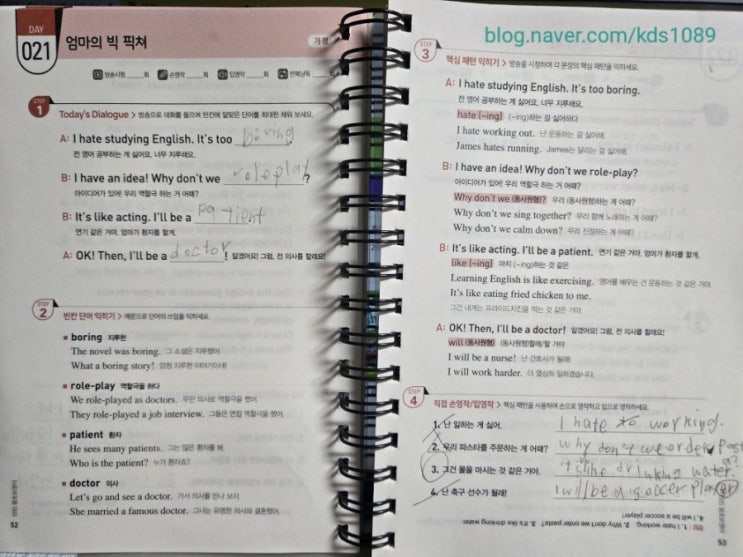 DAY
021
엄마의 빅 픽쳐
가정
방송시청 ___회 손영작 ___회 입영작 ___회 반복낭독 ___회
STEP 1
Today's Dialogue > 방송으로 대화를 들으며 빈칸에 알맞은 단어를 최대한 채워 보세요.
A: I hate studying English. It's too boring
전 영어 공부하는 게 싫어요, 너무 지루해요.
B: I have an idea! Why don't we roleplay?
아이디어가 있어! 우리 역할극 하는 거 어때?
B: It's like acting. I'll be a patient
연기 같은 거야, 엄마가 환자를 할게.
A: OK! Then, I'll be a doctor! 알겠어요! 그럼, 전 의사를 할래요!
STEP 2
빈칸 단어 익히기 > 예문으로 단어의 쓰임을 익히세요.
boring 지루한
The novel was boring. 그 소설은 지루했어.
What a boring story! 엄청 지루한 이야기이네!
role-play 역할극을 하다
We role-played as doctors. 우린 의사로 역할극을 했어.
They role-played a job interview. 그들은 면접 역할극을 했어.
patient 환자
He sees many patients. 그는 많은 환자를 봐.
Who is the patient? 누가 환자죠?
doctor 의사
Let's go and see a doctor. 가서 의사를 만나 보자.
She married a famous doctor. 그녀는 유명한 의사와 결혼했어.
52
blog.naver.com/kds1089
STEP 3
핵심 패턴 익히기 > 방송을 시청하며 각 문장의 핵심 패턴을 익히세요.
A: I hate studying English. It's too boring.
전 영어 공부하는 게 싫어요, 너무 지루해요.
hate [~ing] (~ing)하는 걸 싫어하다
I hate working out. 난 운동하는 걸 싫어해.
James hates running. James는 달리는 걸 싫어해.
B: I have an idea! Why don't we role-play?
아이디어가 있어! 우리 역할극 하는 거 어때?
Why don't we (동사원형)? 우리 (동사원형)하는 게 어때?
Why don't we sing together? 우리 함께 노래하는 게 어때?
Why don't we calm down? 우리 진정하는 게 어때?
B: It's like acting. I'll be a patient. 연기 같은 거야, 엄마가 환자를 할게.
like [~ing] 마치 (~ing)하는 것 같은
Learning English is like exercising. 영어를 배우는 건 운동하는 것 같은 거야.
It's like eating fried chicken to me.
그건 내게는 프라이드치킨을 먹는 것 같은 거야.
A: OK! Then, I'll be a doctor! 알겠어요! 그럼, 전 의사를 할래요!
will (동사원형) (동사원형)할래/할 거야
I will be a nurse! 난 간호사가 될래!
I will work harder. 더 열심히 일하겠습니다.
STEP 4
직접 손영작/입영작 > 핵심 패턴을 사용하여 손으로 영작하고 입으로 영작하세요.
1. 난 일하는 게 싫어. I hate to working.
2. 우리 파스타를 주문하는 게 어때? why don't we order
3. 그건 물을 마시는 것 같은 거야. it's like drinking water.
4. 난 축구 선수가 될래! I will be a soccer player
1. I hate working. 2. Why don't we order pasta? 3. It's like drinking water.
4. I will be a soccer player!
53